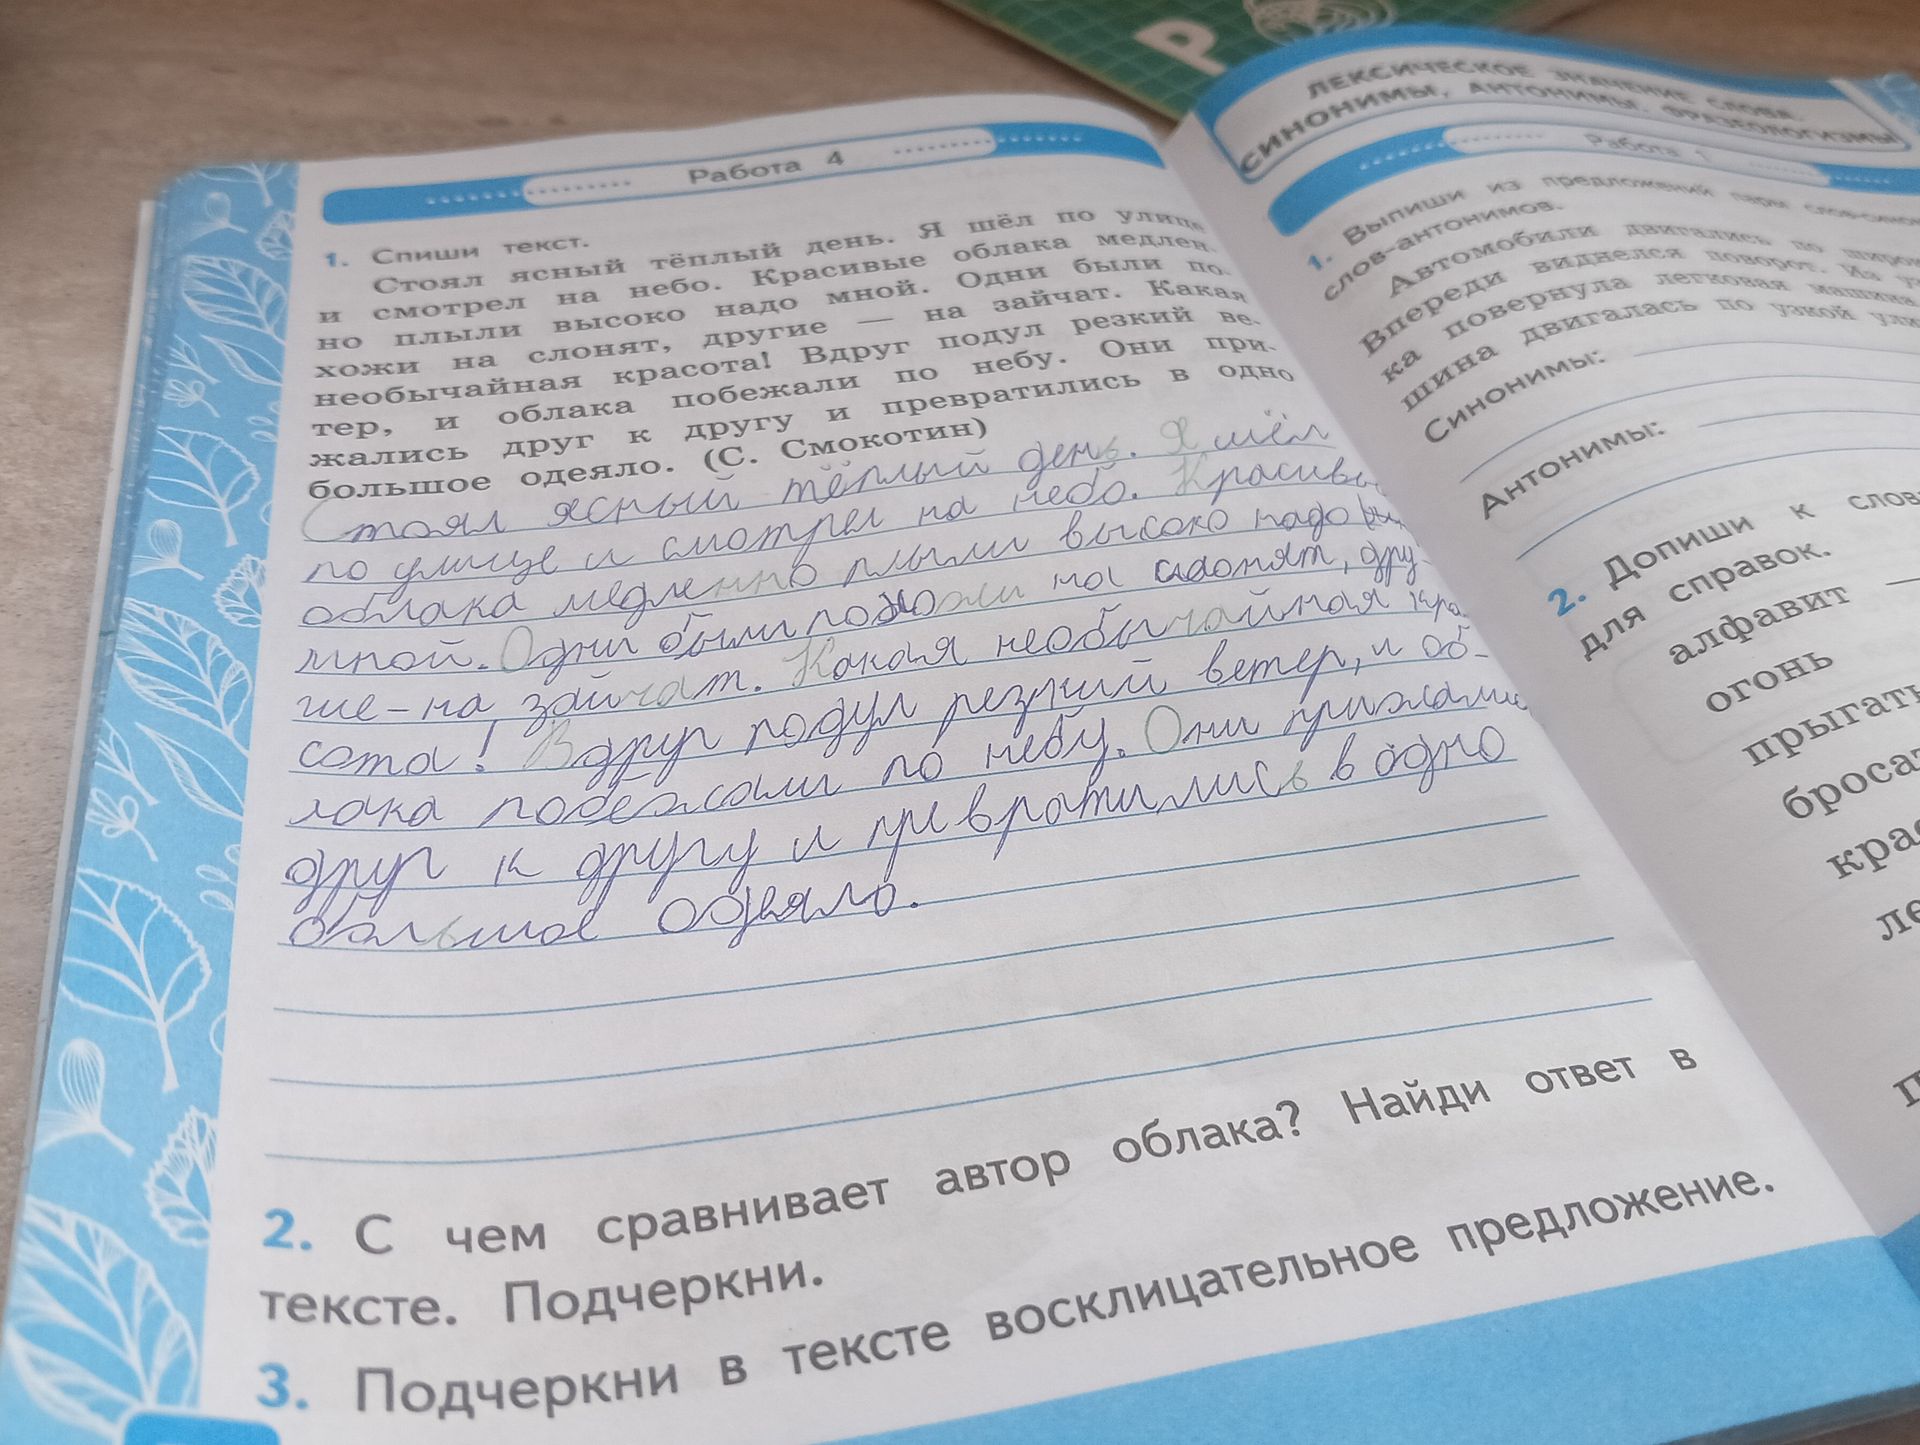 Р
Работа 4
1. Спиши текст.
Стоял ясный тёплый день. Я шёл по улице
и смотрел на небо. Красивые облака медлен-
но плыли высоко надо мной. Одни были по-
хожи на слонят, другие — на зайчат. Какая
необычайная красота! Вдруг подул резкий ве-
тер, и облака побежали по небу. Они при-
жались друг к другу и превратились в одно
большое одеяло. (С. Смокотин)
Стоял ясный тёплый день. Я шёл
по улице и смотрел на небо. Красивы
облака медленно плыли высоко надо
мной. Одни были похожи на слонят, дру-
гие - на зайчат. Какая необычайная кра
сота! Вдруг подул резкий ветер, и об-
лака побежали по небу. Они прижались
друг к другу и превратились в одно
большое одеяло.
2. С чем сравнивает автор облака? Найди ответ в
тексте. Подчеркни.
3. Подчеркни в тексте восклицательное предложение.
ЛЕКСИЧЕСКОЕ ЗНАЧЕНИЕ СЛОВА.
СИНОНИМЫ, АНТОНИМЫ. ФРАЗЕОЛОГИЗМЫ
Работа 1
1. Выпиши из предложений пары
слов-антонимов.
Автомобили двигались по широ
Впереди виднелся поворот. Из
ка повернула легковая машина
шина двигалась по узкой ули
Синонимы:
Антонимы:
2. Допиши к слов
для справок.
алфавит —
огонь
прыгать
броса
кра
ле
п